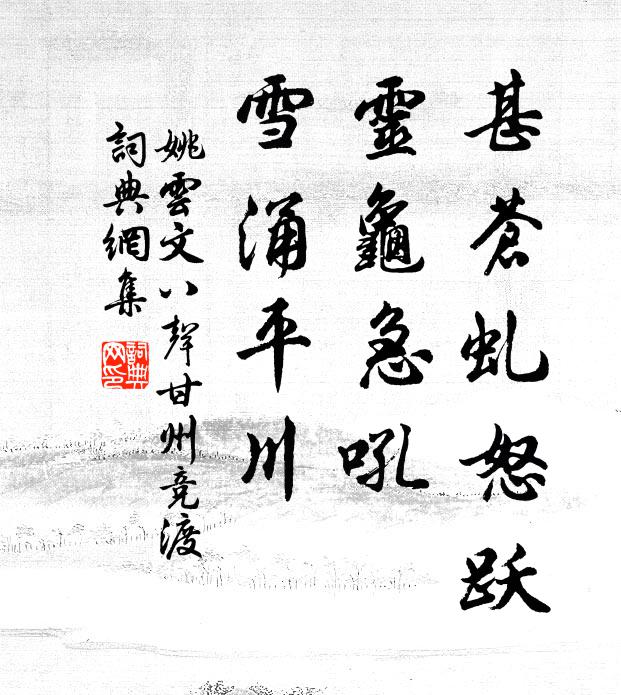 甚蒼虬怒跃
靈龜急吼
雪涌平川
姚雲文八聲甘州竞渡
詞典網集
詞典
网印